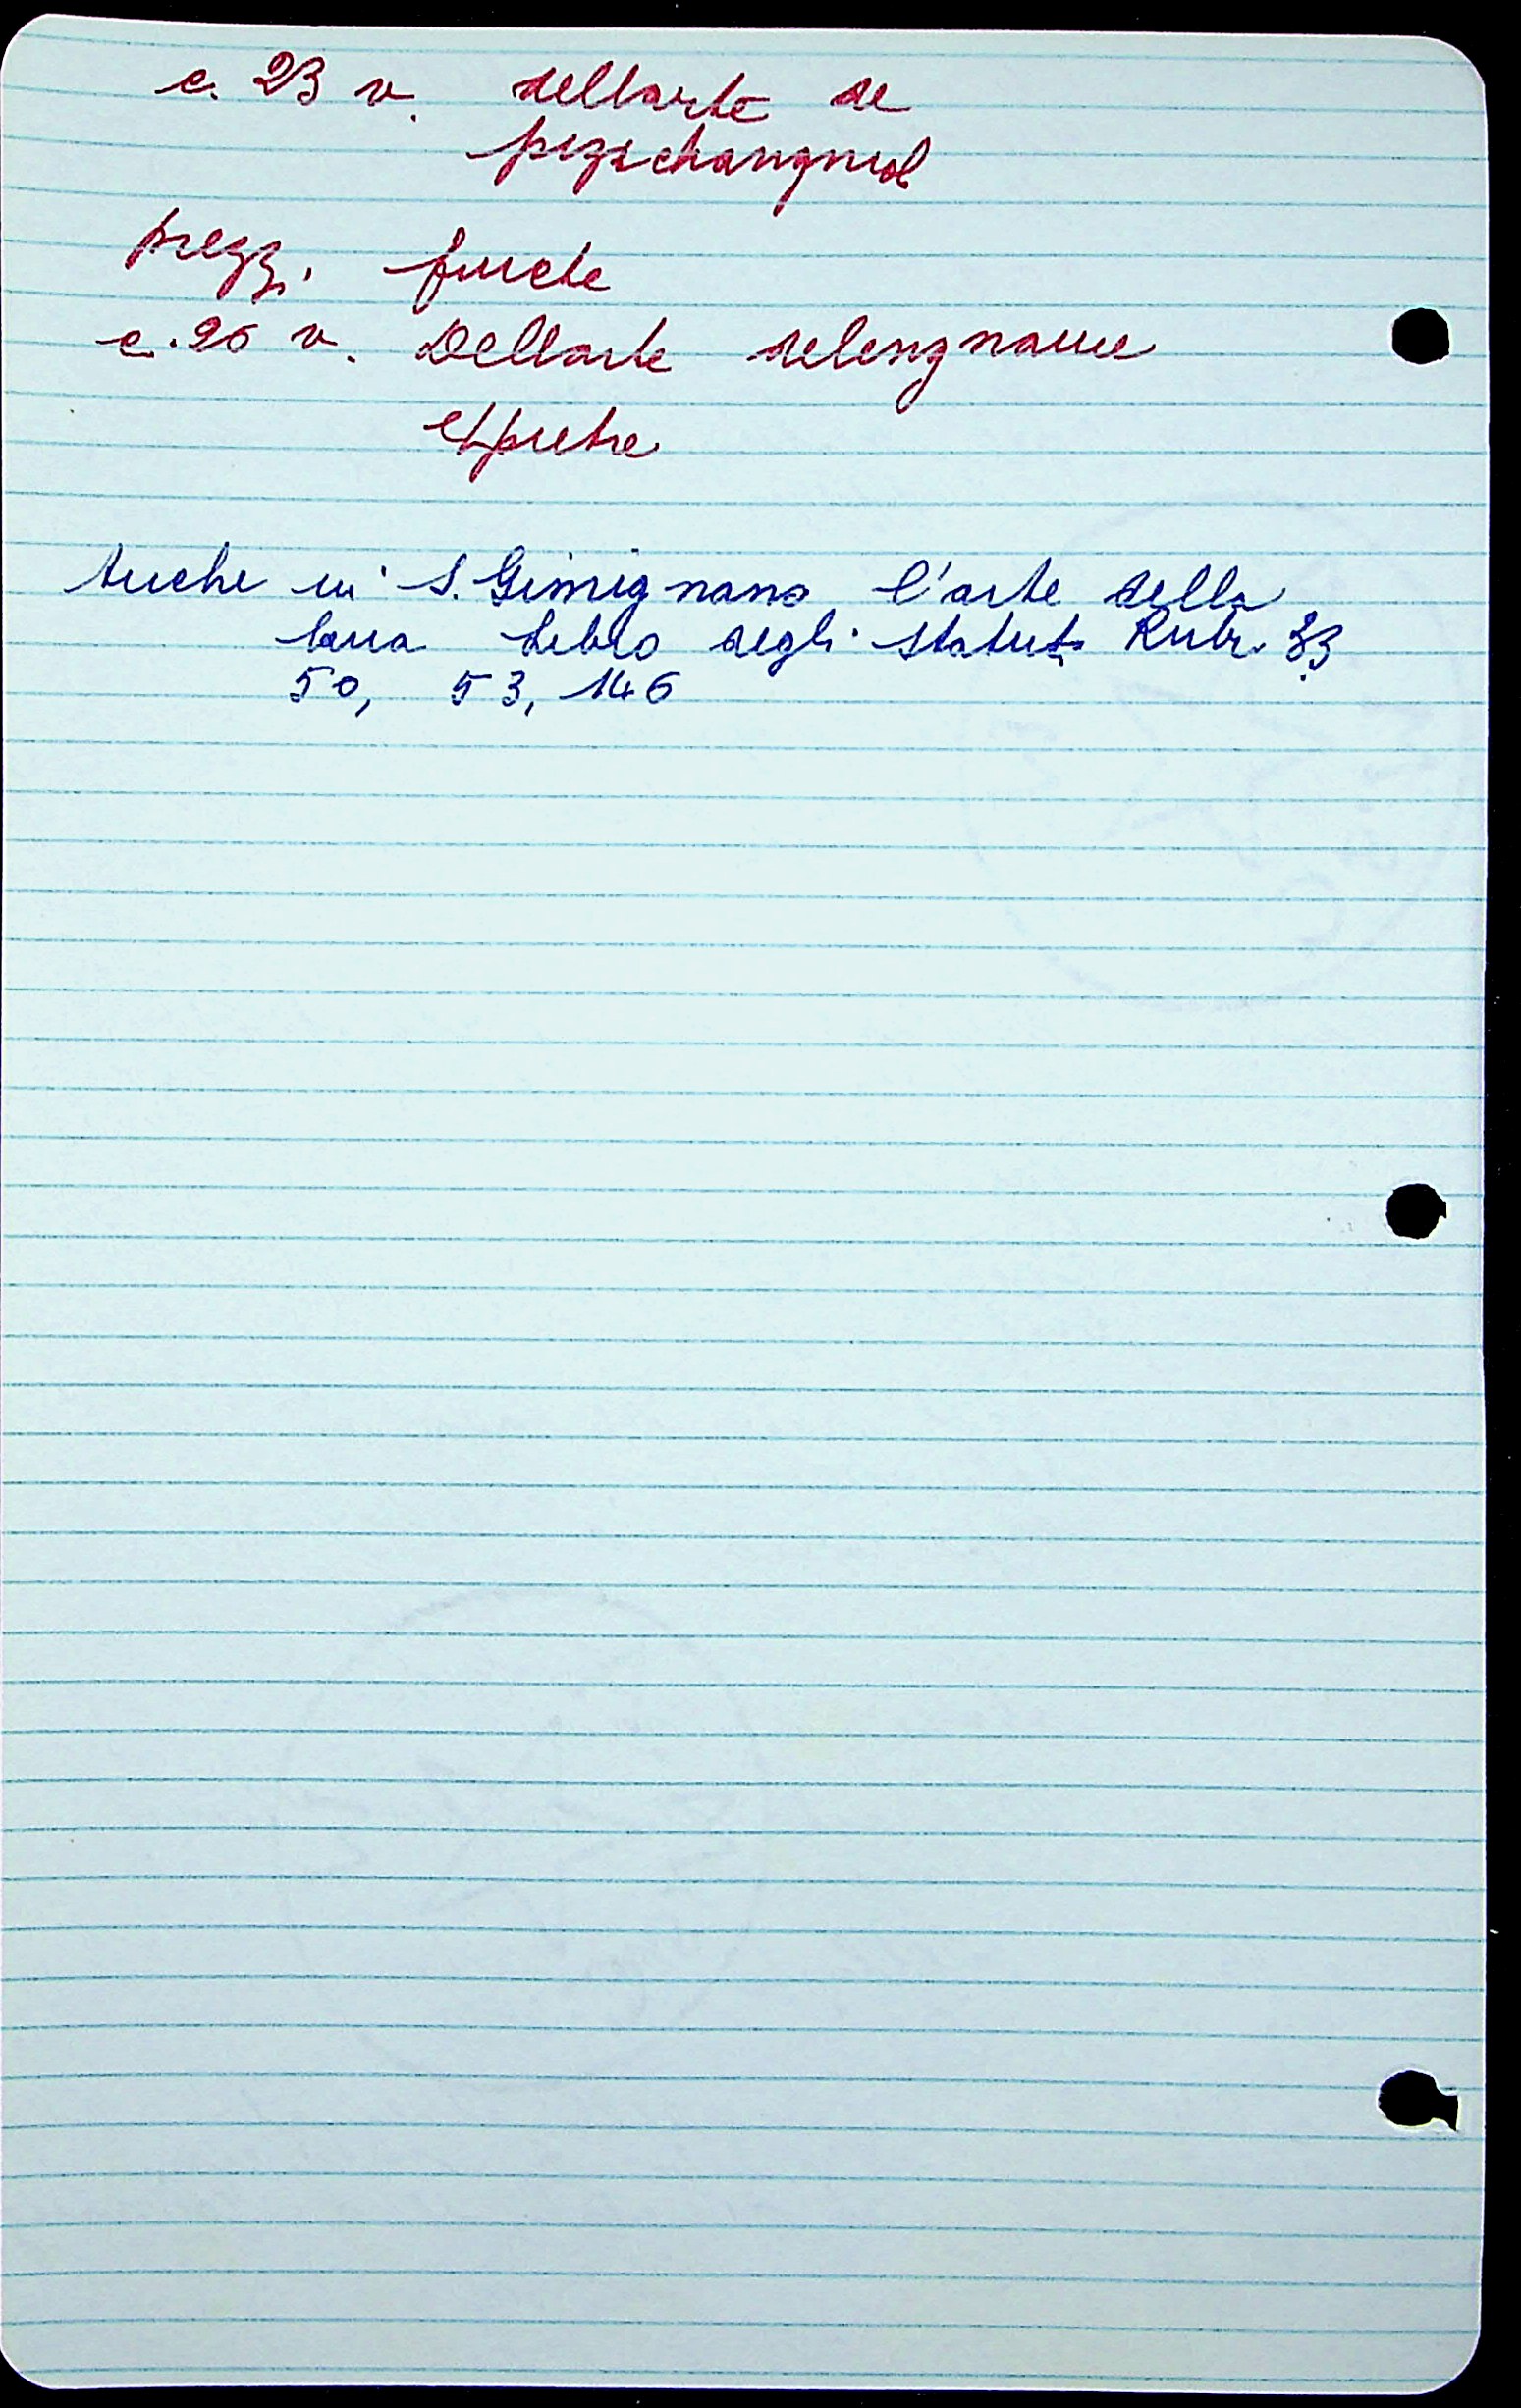 c. 23 v. dellarte de
pizichangniol
prezzi furche
c. 26 v. Dellarte delengname
etpietre
Anche in S. Gimignano l'arte della
lana Libro degli statuti Rubr.
50, 53, 146